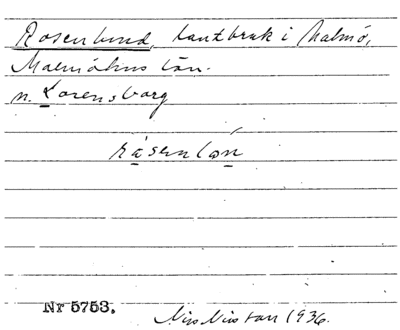 Rosenlund, lantbruk i Malmö,
Malmöhus län.
n. Lorensborg
Nr 5753. Nils Nilsson 1936.